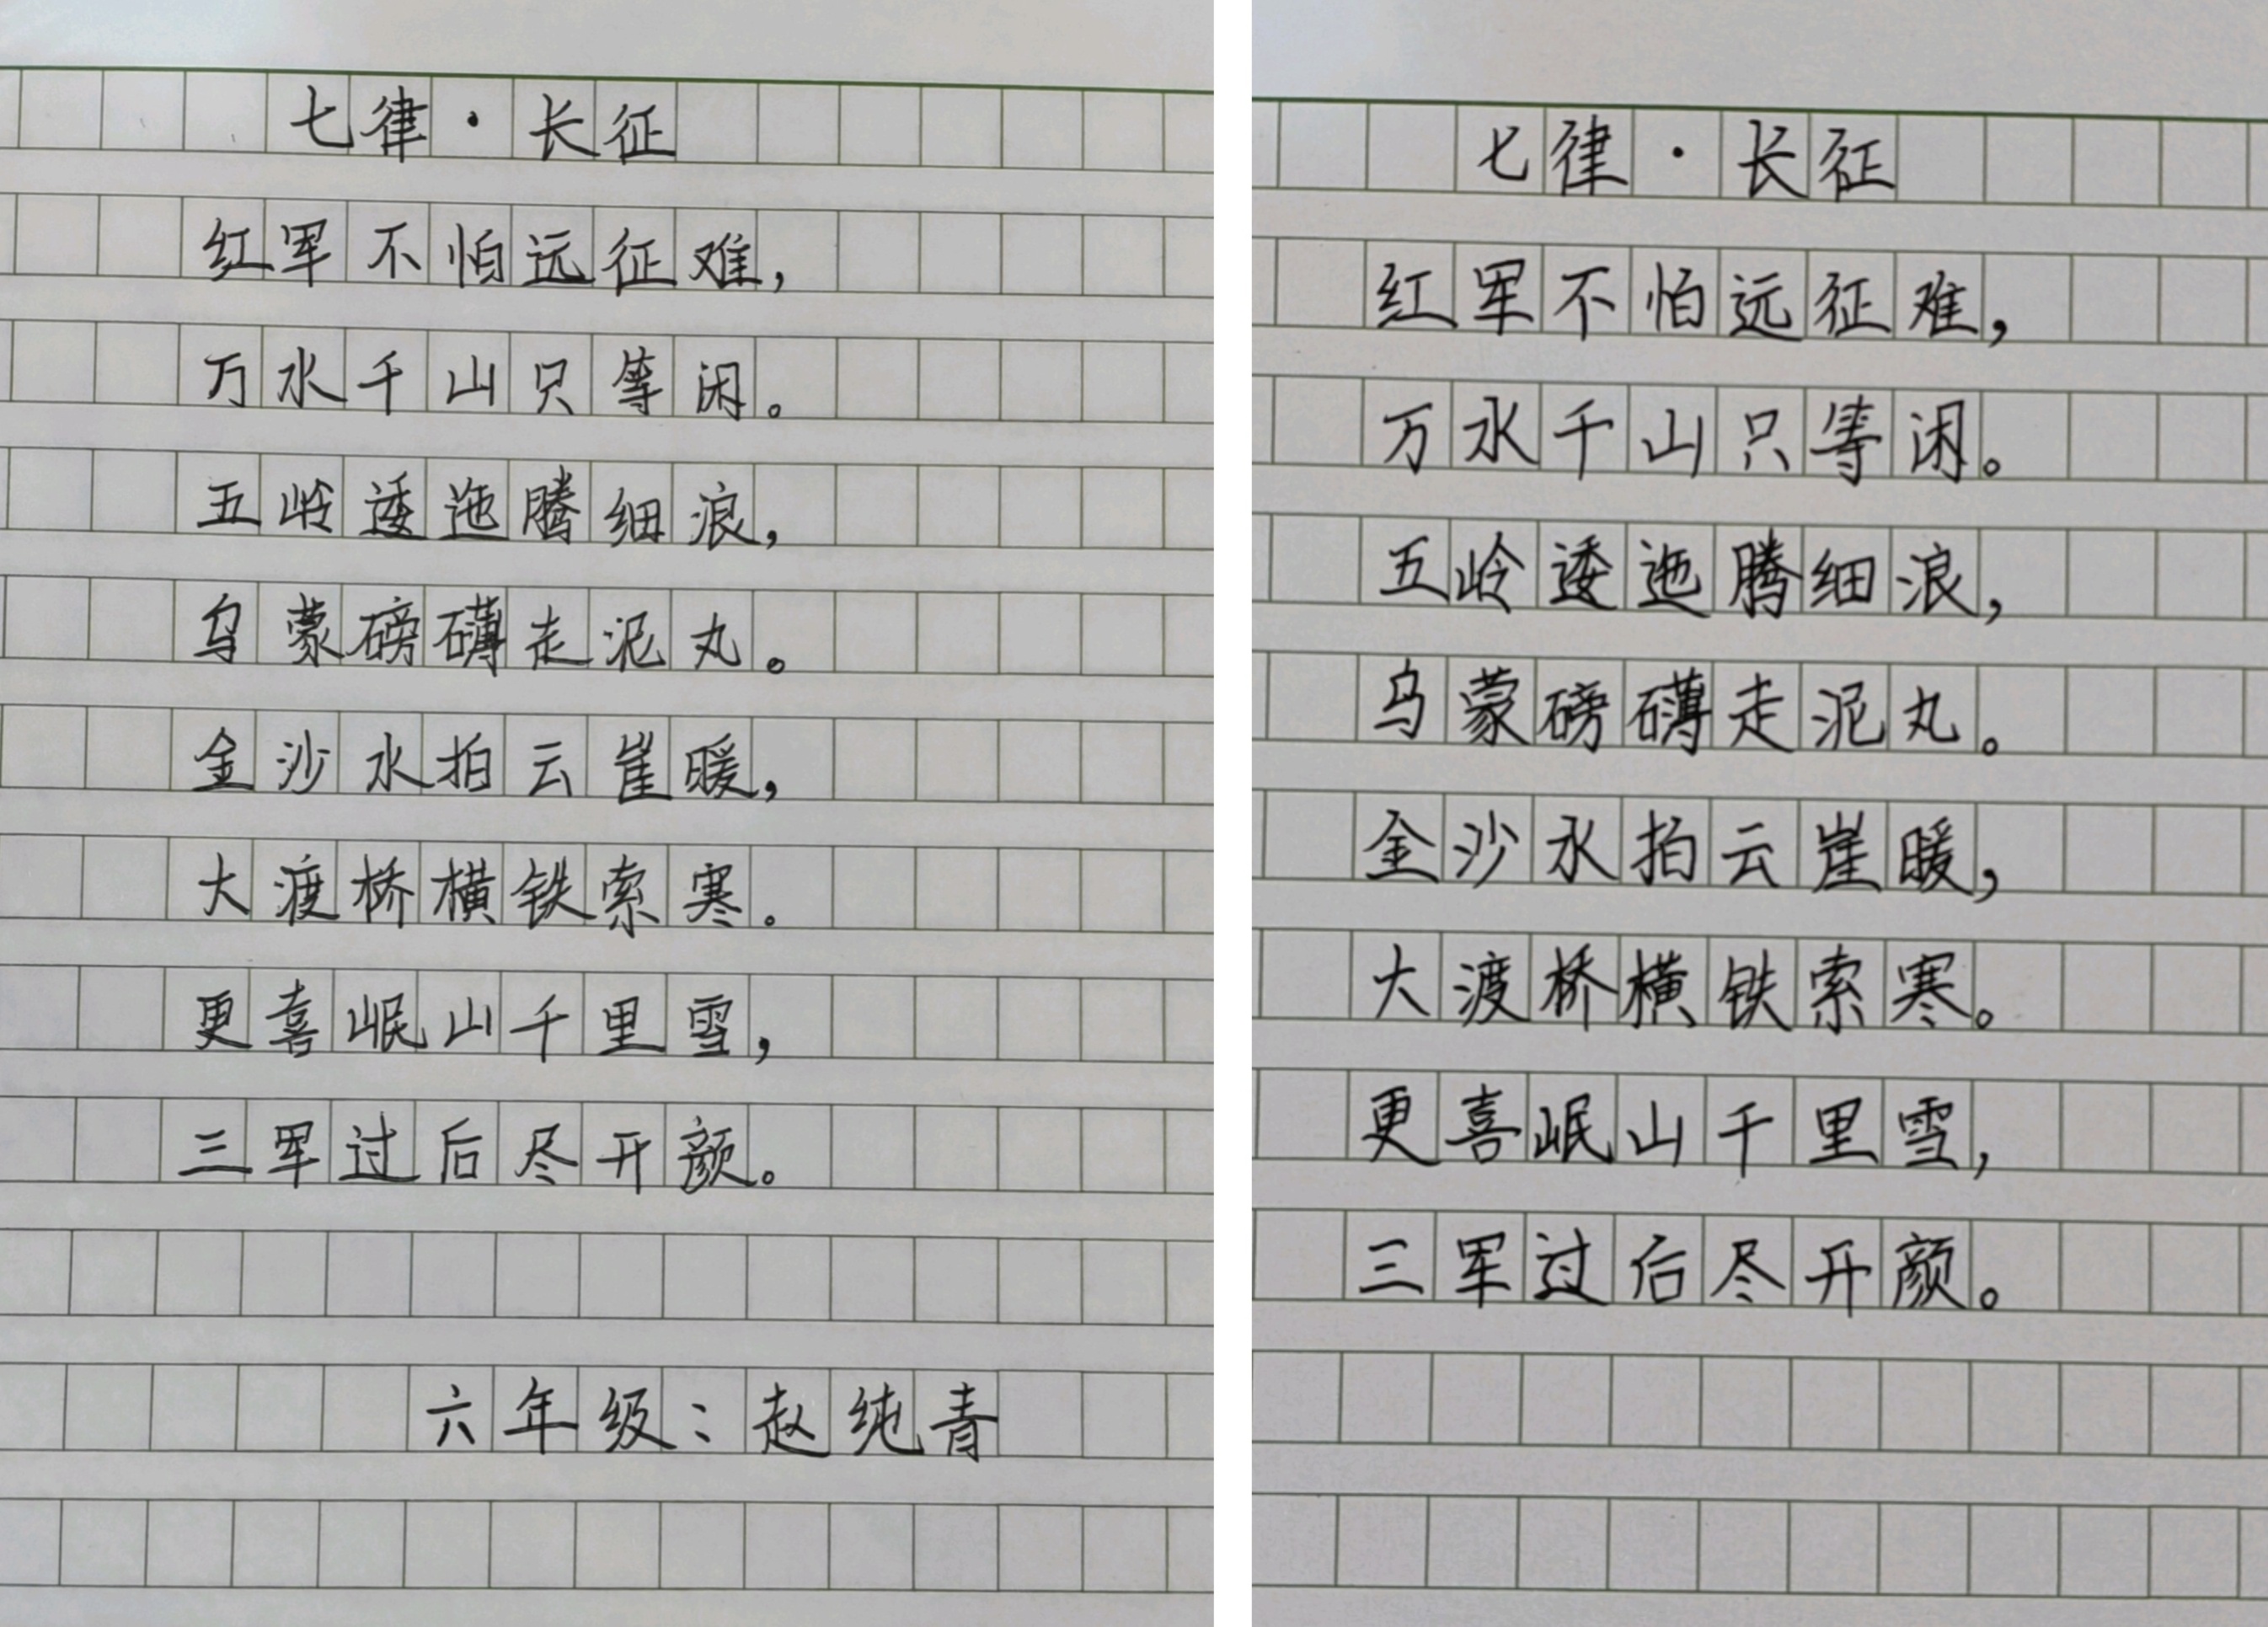 七律·长征
红军不怕远征难，
万水千山只等闲。
五岭逶迤腾细浪，
乌蒙磅礴走泥丸。
金沙水拍云崖暖，
大渡桥横铁索寒。
更喜岷山千里雪，
三军过后尽开颜。
六年级：赵纯青
七律·长征
红军不怕远征难，
万水千山只等闲。
五岭逶迤腾细浪，
乌蒙磅礴走泥丸。
金沙水拍云崖暖，
大渡桥横铁索寒。
更喜岷山千里雪，
三军过后尽开颜。